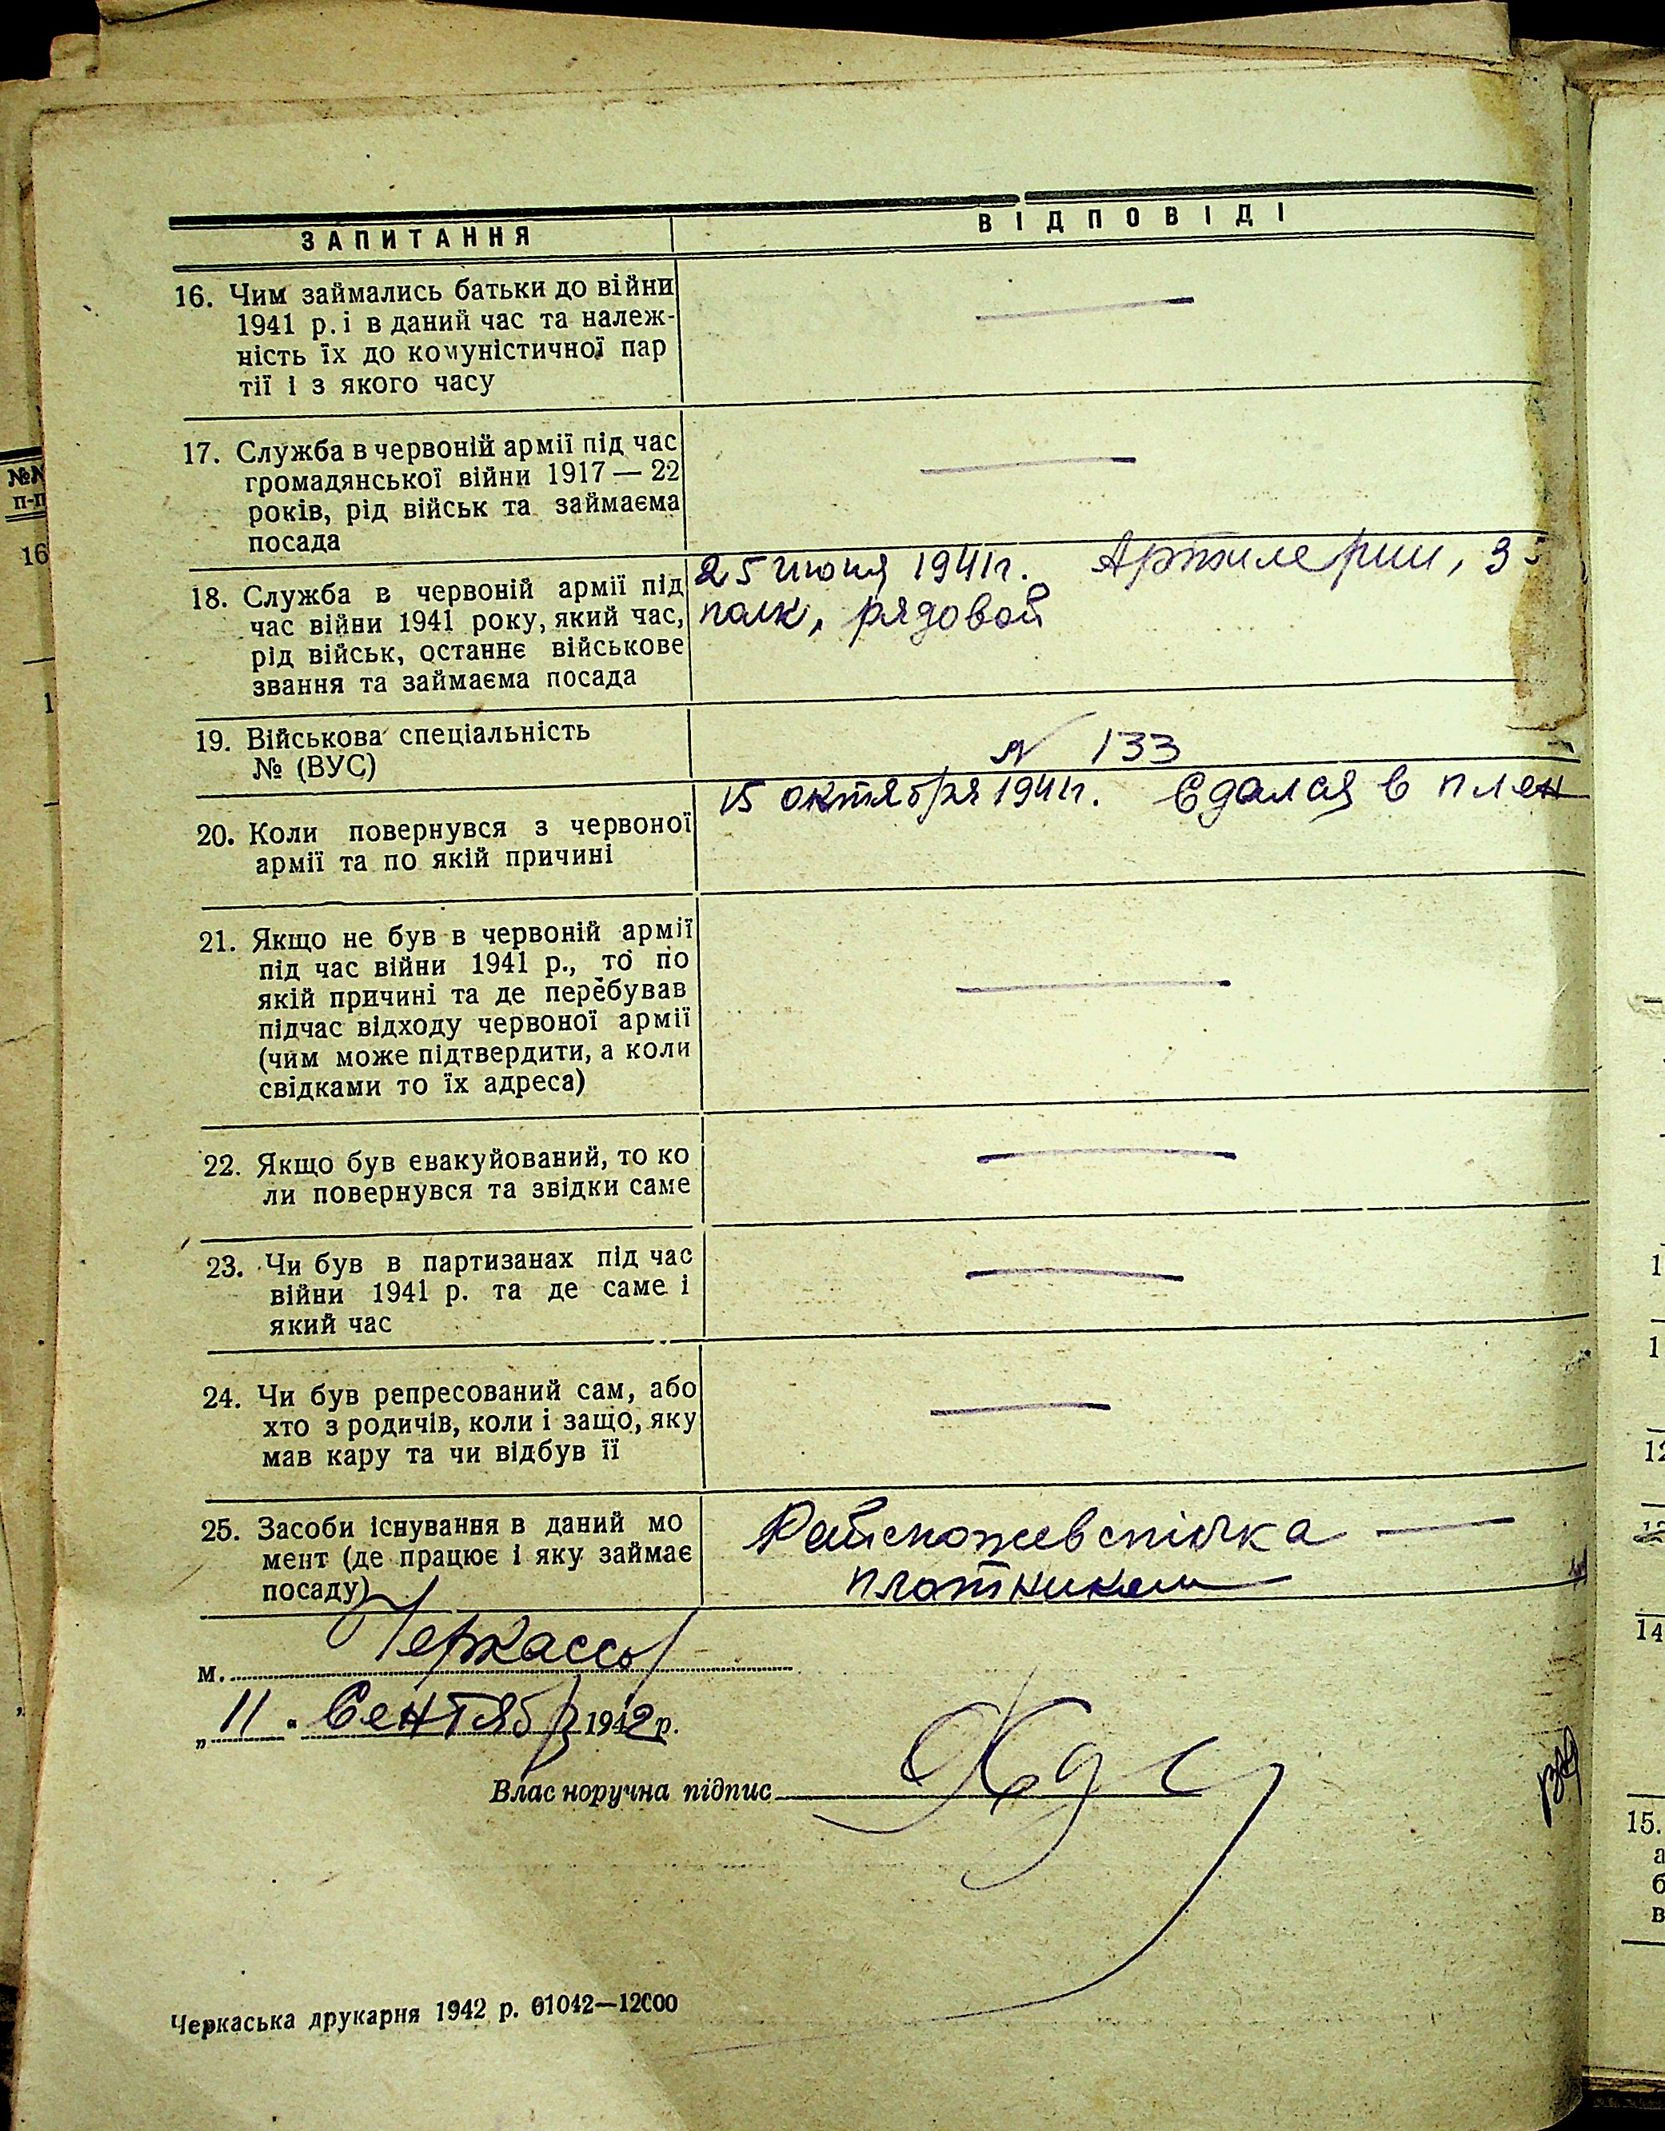 ЗАПИТАННЯ
ВІДПОВІДІ
16. Чим займались батьки до війни
1941 р. і в даний час та належ-
ність їх до комуністичної пар
тії і з якого часу
—
17. Служба в червоній армії під час
громадянської війни 1917—22
років, рід військ та займаєма
посада
—
18. Служба в червоній армії під
час війни 1941 року, який час,
рід військ, останнє військове
звання та займаєма посада
25 июня 1941г. Артилерии, 3
полк, рядовой
19. Військова спеціальність
№ (ВУС)
№ 133
20. Коли повернувся з червоної
армії та по якій причині
15 октября 1941г. Сдался в плен
21. Якщо не був в червоній армії
під час війни 1941 р., то по
якій причині та де перебував
підчас відходу червоної армії
(чим може підтвердити, а коли
свідками то їх адреса)
—
22. Якщо був евакуйований, то ко
ли повернувся та звідки саме
—
23. Чи був в партизанах під час
війни 1941 р. та де саме і
який час
—
24. Чи був репресований сам, або
хто з родичів, коли і защо, яку
мав кару та чи відбув її
—
25. Засоби існування в даний мо
мент (де працює і яку займає
посаду)
Райспоживспілка —
плотником
м. Черкассы
„11" Сентябр 1942 р.
Влас норучна підпис
Черкаська друкарня 1942 р. 01042—12000
№№
п-п
16
1
1
1
12
13
14
15.
а
б
в